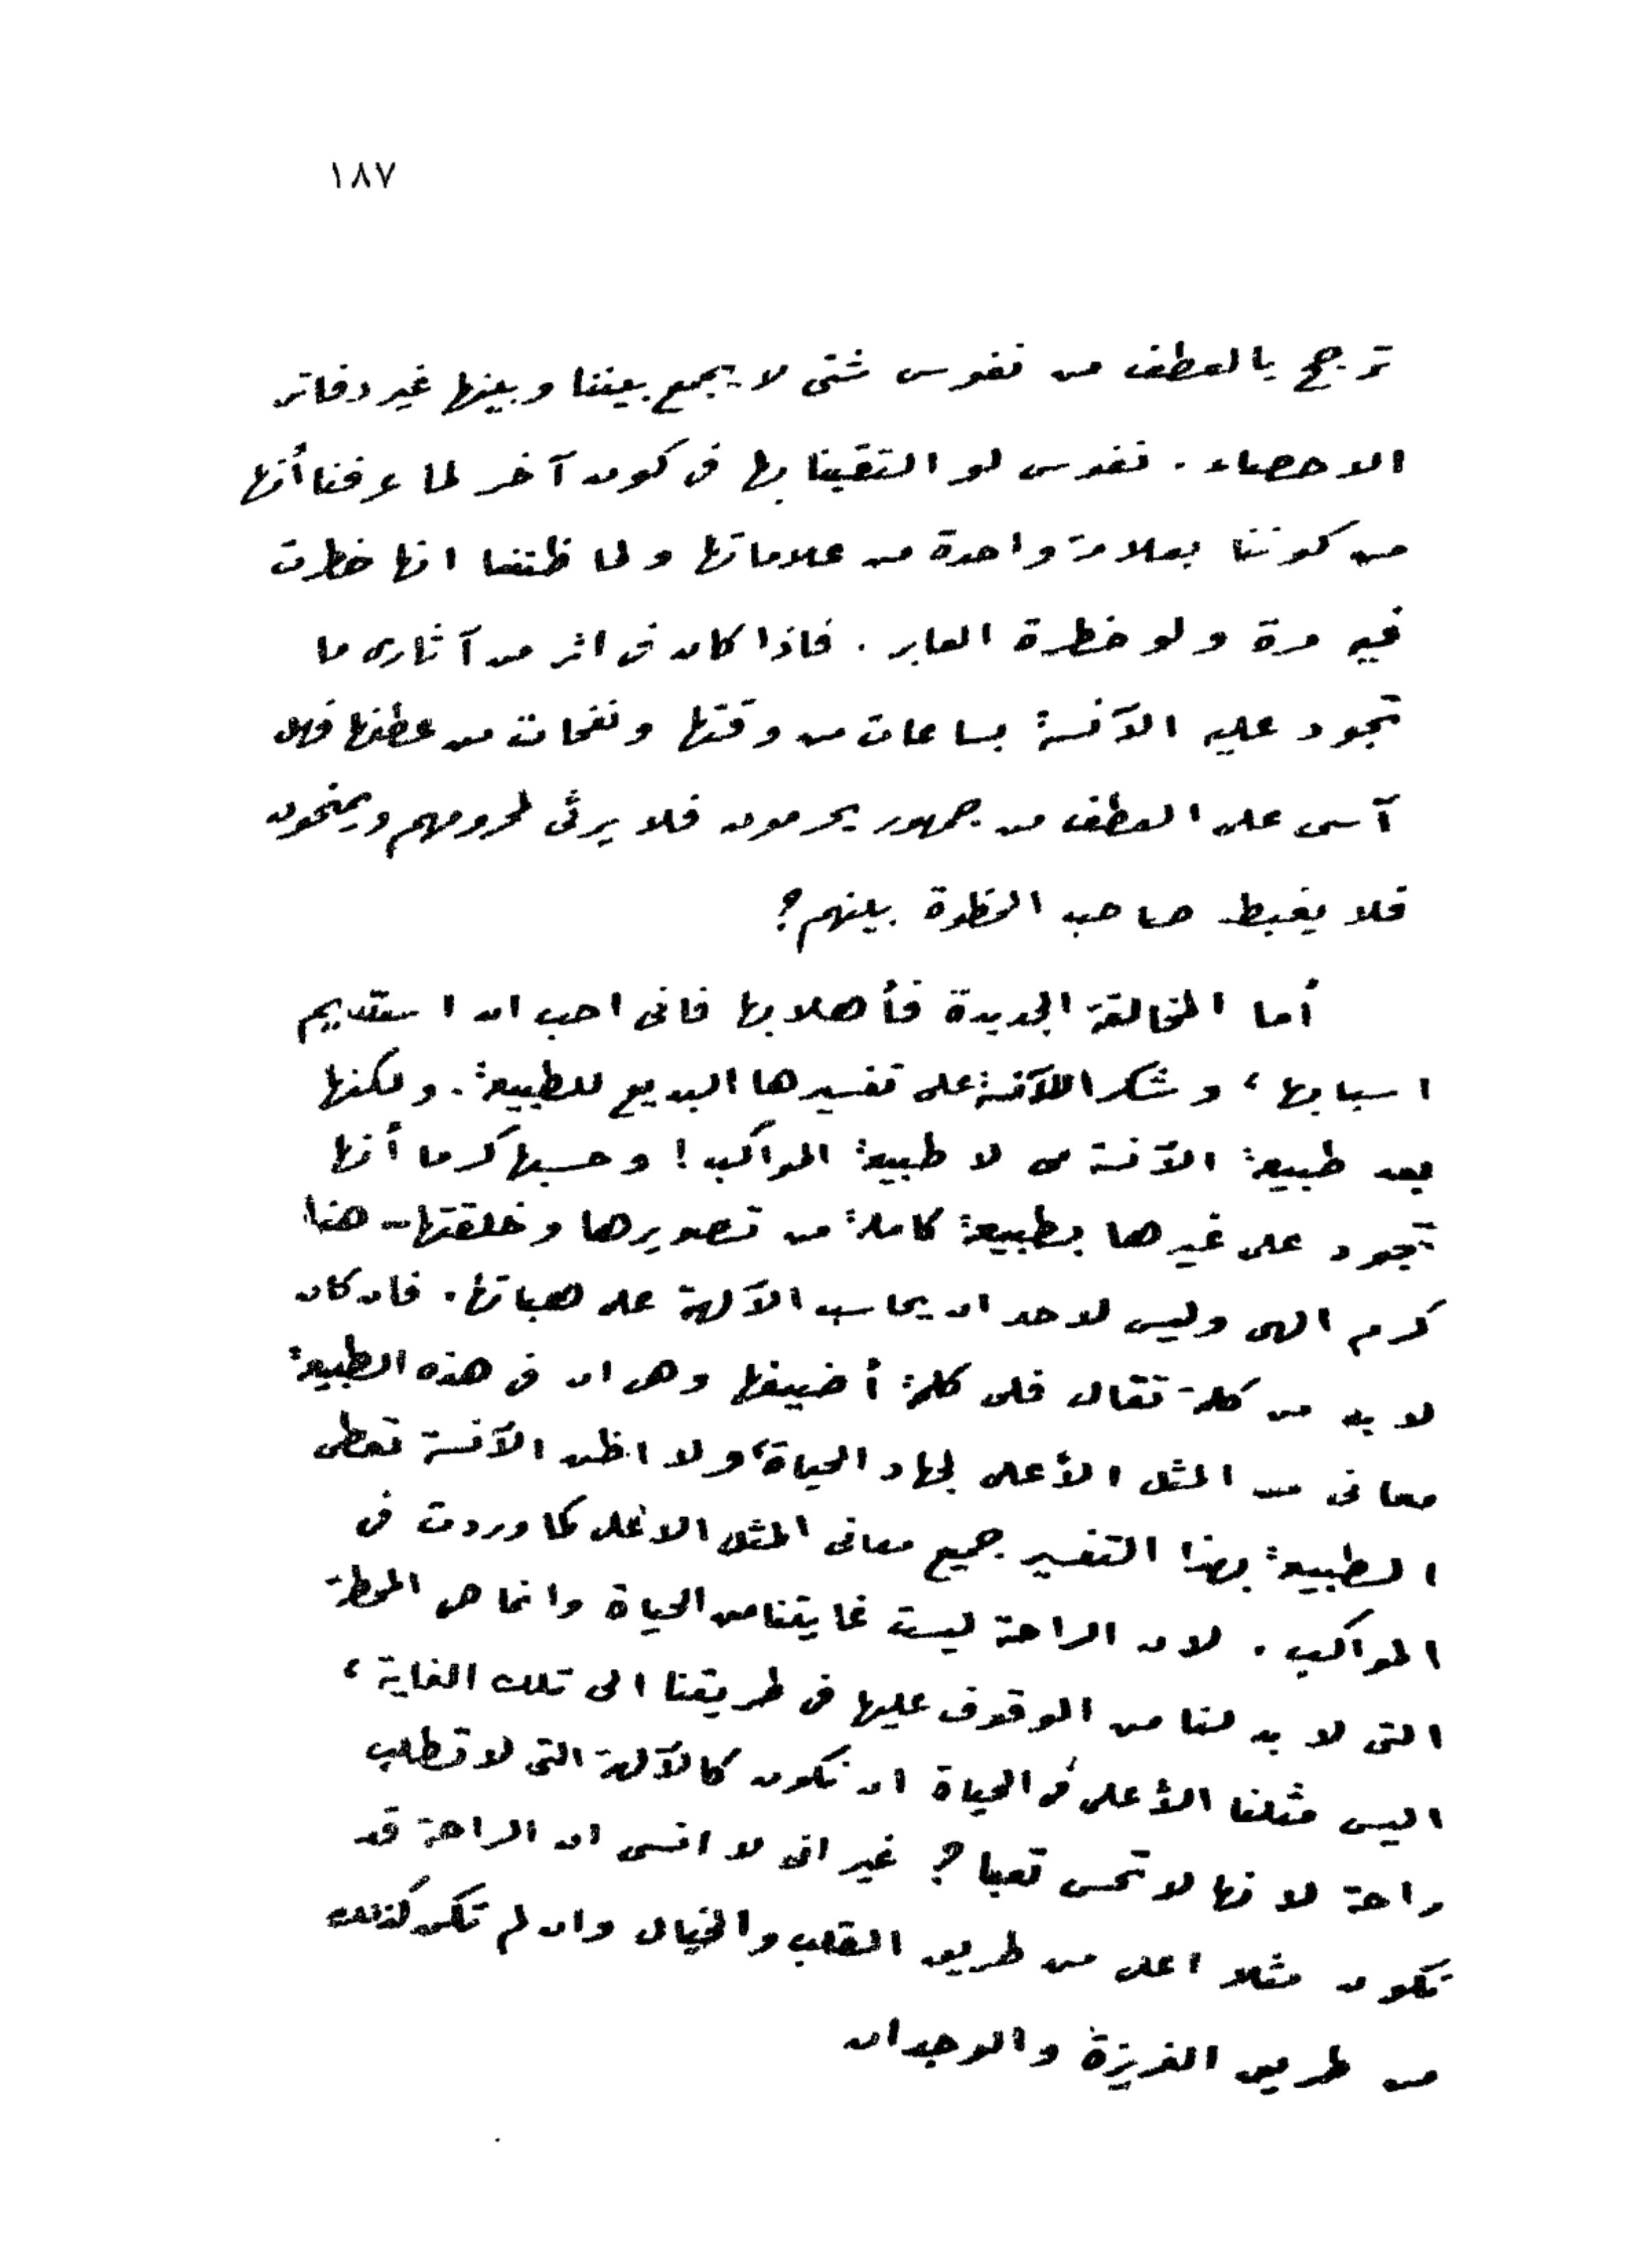 ١٨٧
ترجح بالعطف من نفوس شتى لا يجمع بيننا وبينها غير دفاتر
الاحصاء . نفوس لو التقينا بها فى كون آخر لما عرفنا أنها
من كوننا بعلامة واحدة من علاماتها ولما ظننا انها خطرت
فيه مرة ولو خطرة العابر . فاذا كان فى اثر من آثارى ما
تجود عليه الآنسة بساعات من وقتها ونفحات من عطفها فهل
آسى على العطف من جمهور يحرمون فلا يرثى لمحرومهم ويمنحون
فلا يغبط صاحب الحظوة بينهم ؟
أما المخالفة الجديدة فأهلا بها فانى احب ان استديم
اسبابها ، وشكرا للآنسة على تفسيرها البديع للطبيعة . ولكنها
بعد طبيعة الآنسة مى لا طبيعة المواكب ! وحسبها كرما أنها
تجود على غيرها بطبيعة كاملة من تصويرها وخلقتها - هذا
كرم الهى وليس لاحد ان يحاسب الآلهة على هباتها . فان كان
لا بد من كلمة تقال فلى كلمة أضيفها وهى ان فى هذه الطبيعة
معانى من المثل الأعلى لجهاد الحياة ، ولا اظن الآنسة تعطى
الطبيعة بهذا التفسير جميع معانى المثل الاعلى كما وردت فى
المواكب . لان الراحة ليست غايتنا من الحياة وانما هى المحطة
التى لا بد لنا من الوقوف عليها فى طريقنا الى تلك الغاية ،
اليس مثلنا الأعلى فى الحياة ان نكون كالآلهة التى لا تطلب
راحة لانها لا تحس تعبا ؟ غير انى لا انسى ان الراحة قد
تكون مثلا اعلى من طريق القلب والخيال وان لم تكن كذلك
من طريق الغريزة والوجدان